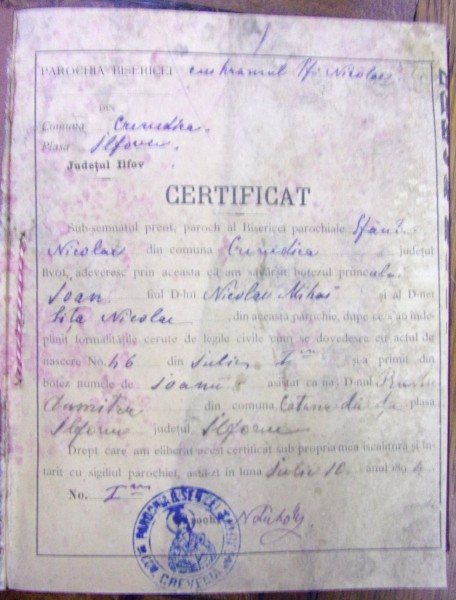 PAROCHIA BISERICEI cu hramul Sf. Nicolae
DIN
Comuna
Plasa Ilfovu
Județul Ilfov
CERTIFICAT
Sub-semnatul preut, paroch al Bisericei parochiale Sfântu
Nicolae din comuna județul
Ilfov, adeveresc prin aceasta că am săvârșit botezul pruncului
Ioan fiul D-lor Nicolae Mihai și al D-nei
Nicolae din această parochie, după ce s'au inde-
plinit formalitățile cerute de legile civile cum se dovedesce cu actul de
nascere No. 46 din Iulie și a primit din
botez numele de Ioanu asistat ca naș D-nul
Dumitru din comuna plasa
Ilfovu județul Ilfovu
Drept care am eliberat acest certificat sub propria mea iscălitură și în-
tărit cu sigiliul parochiei, astă-zi în luna Iulie 10 anul 189
No. I
Paroch
PAROCHIA BISERICEI
COM. CREVEDIA